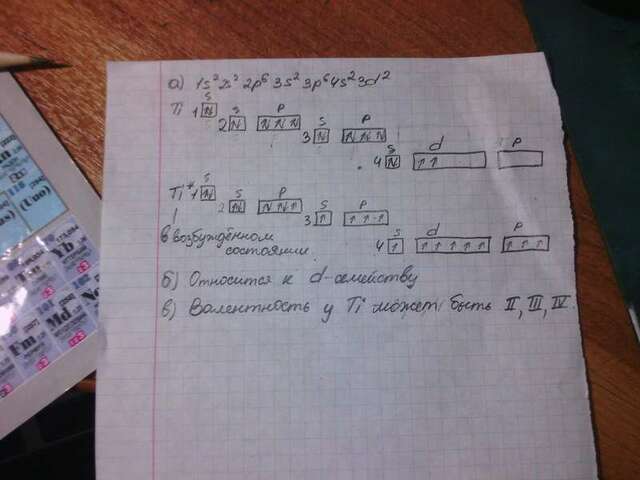 а) 1s² 2s² 2p⁶ 3s² 3p⁶ 4s² 3d²
Ti 1 s
2 s p
3 s p
4 s d p
Ti* 1 s
2 s p
3 s p
в возбуждённом
состоянии
4 s d p
б) Относится к d-семейству
в) Валентность у Ti может быть II, III, IV.
Yb
Fm
Md
No